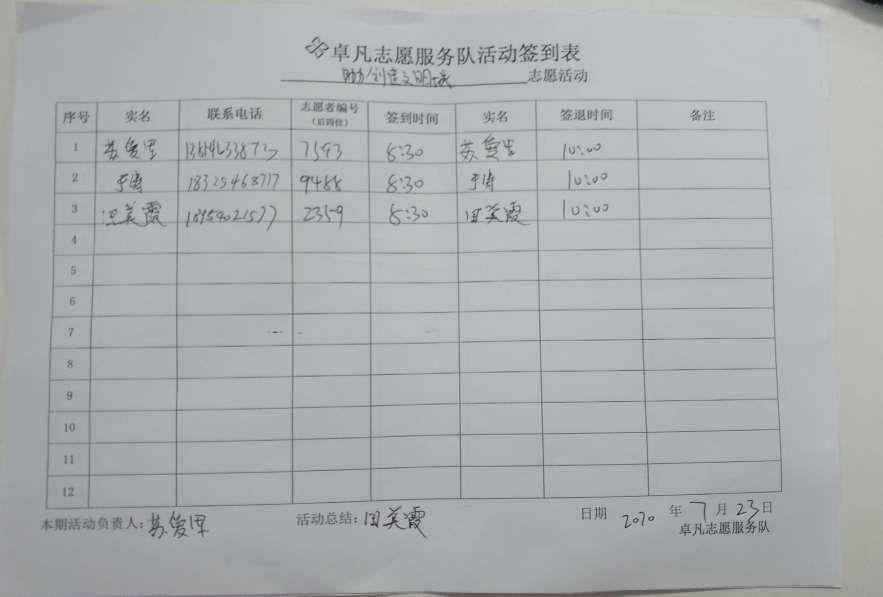 卓凡志愿服务队活动签到表
助力创建文明城 志愿活动
序号 实名 联系电话 志愿者编号（后四位） 签到时间 实名 签退时间 备注
1 苏爱军 7593 8:30 苏爱军 10:00
2 于涛 18325468717 9488 8:30 于涛 10:00
3 田美霞 18959021577 2359 8:30 田美霞 10:00
4
5
6
7
8
9
10
11
12
本期活动负责人：苏爱军 活动总结：田美霞 日期 2020 年 7 月 23 日
卓凡志愿服务队